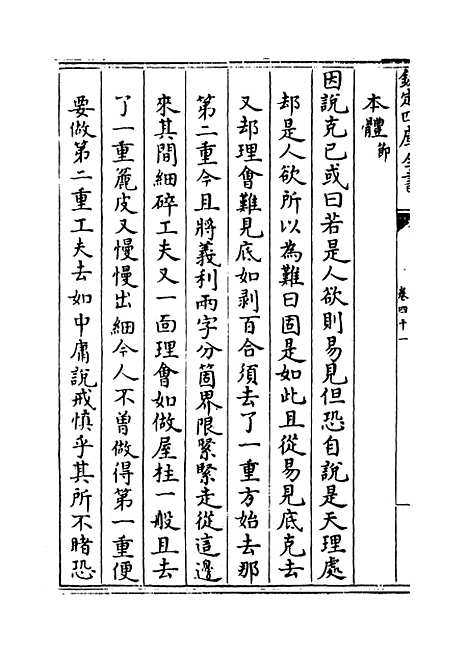 欽定四庫全書
卷四十一
本體節
因說克己或曰若是人欲則易見但恐自說是天理處
却是人欲所以為難曰固是如此且從易見底克去
又却理會難見底如剥百合須去了一重方始去那
第二重今且將義利兩字分箇界限緊緊走從這邊
來其間細碎工夫又一靣理會如做屋柱一般且去
了一重麄皮又慢慢出細今人不曾做得第一重便
要做第二重工夫去如中庸說戒慎乎其所不睹恐